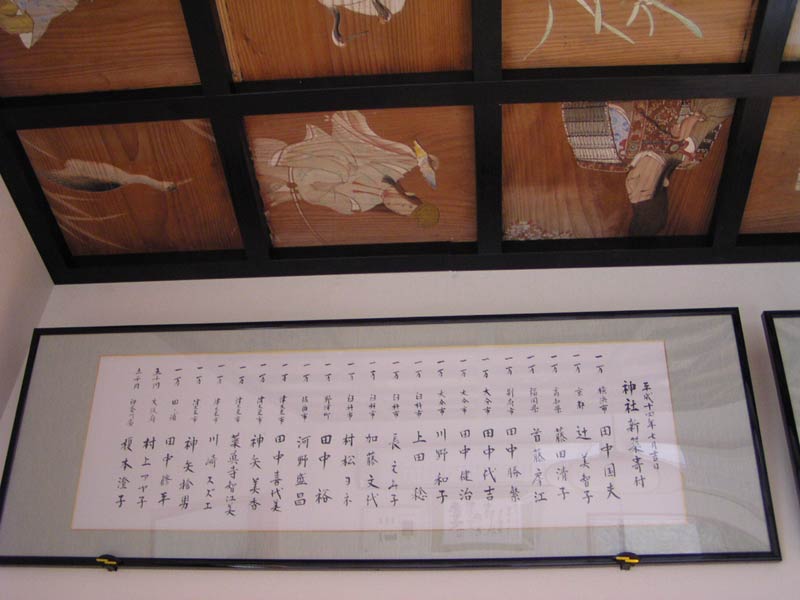 平成十四年七月吉日
神社新築寄付
一万 横浜市 田中国夫
一万 京都 辻美智子
一万 高知県 藤田清子
一万 福岡県 首藤彦江
一万 別府市 田中勝繁
一万 大分市 田中代吉
一万 大分市 田中健治
一万 大分市 川野和子
一万 臼杵市 上田稔
一万 臼杵市 長えみ子
一万 臼杵市 加藤文代
一万 臼杵市 村松ヨネ
一万 野津町 田中裕
一万 佐伯市 河野盛昌
一万 津久見市 田中喜代美
一万 津久見市 神矢美香
一万 津久見市 薬師寺智江美
一万 津久見市 川崎スズエ
一万 津久見市 神矢拾男
一万 田中修革
五千円 大阪府 村上ツヤ子
五千円 神奈川県 榎本澄子